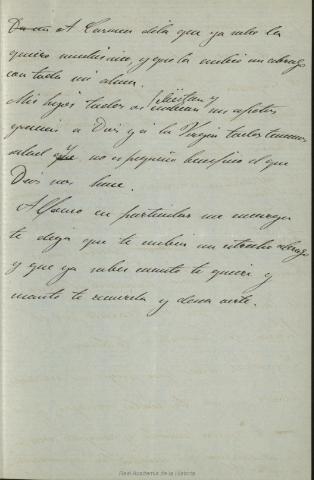 A Carmen dila que ya sabe la
quiero muchísimo, y que la envio un abrazo
con toda mi alma.
Mis hijos todos os felicitan y
gracias a Dios y á la Virgen todos tenemos
salud y no es pequeño beneficio el que
Dios nos hace.
Alfonso en particular me encarga
te diga que te envia un estrecho abrazo
y que ya sabes cuanto te quiere y
cuanto te recuerda y desea verte.
Real Academia de la Historia